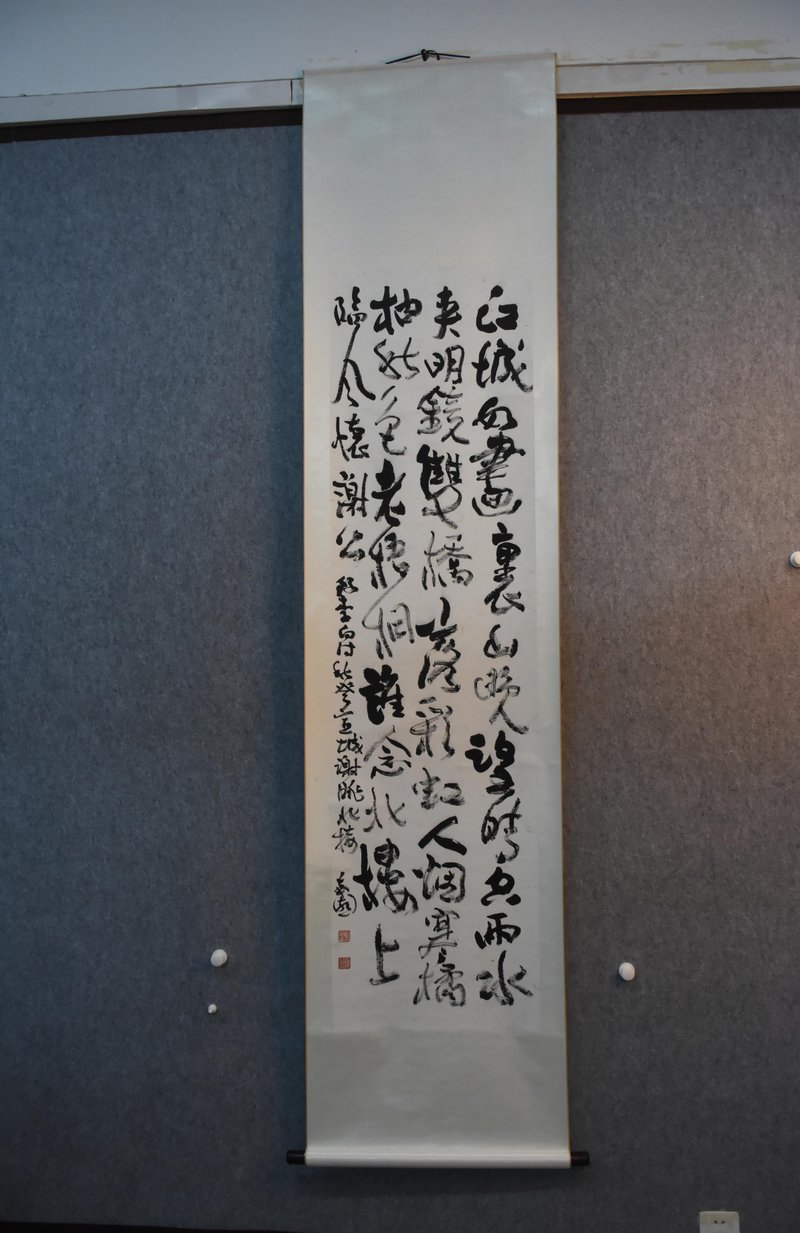 江城如畫裏山晚望晴空兩水
夾明鏡雙橋落彩虹人烟寒橘
柚秋色老梧桐誰念北樓上
臨風懷謝公 李白詩秋登宣城謝朓北樓